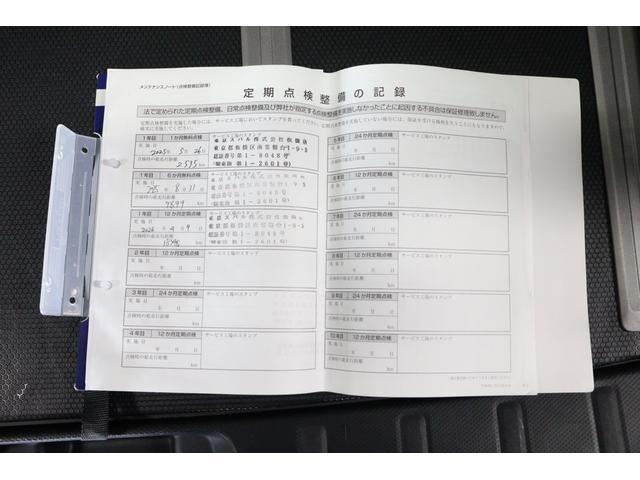 メンテナンスノート(点検整備記録簿)
定期点検整備の記録
法で定められた定期点検整備、日常点検整備及び弊社が指定する点検整備を実施しなかったことに起因する不具合は保証修理致しません。
1年目 1か月無料点検
サービス工場のスタンプ
実施日 2025年5月26日
東京スバル株式会社板橋店
東京都板橋区南常盤台1-9-5
認証番号第1-8048号
点検時の総走行距離 2595 km
関東指第1-2601号
1年目 6か月無料点検
サービス工場のスタンプ
実施日 年8月11日
認証番号第1-8048号
点検時の総走行距離 km
関東指第1-2601号
1年目 12か月定期点検
サービス工場のスタンプ
実施日 年 月9日
東京都板橋区南常盤台1-9-5
認証番号第1-8048号
点検時の総走行距離 km
関東指第1-2601号
2年目 12か月定期点検
サービス工場のスタンプ
実施日
年 月 日
点検時の総走行距離 km
3年目 24か月定期点検
サービス工場のスタンプ
実施日
年 月 日
点検時の総走行距離 km
4年目 12か月定期点検
サービス工場のスタンプ
実施日
年 月 日
点検時の総走行距離 km
5年目 24か月定期点検
サービス工場のスタンプ
実施日
年 月 日
点検時の総走行距離 km
6年目 12か月定期点検
サービス工場のスタンプ
実施日
年 月 日
点検時の総走行距離 km
7年目 24か月定期点検
サービス工場のスタンプ
実施日
年 月 日
点検時の総走行距離 km
8年目 12か月定期点検
サービス工場のスタンプ
実施日
年 月 日
点検時の総走行距離 km
9年目 24か月定期点検
サービス工場のスタンプ
実施日
年 月 日
点検時の総走行距離 km
10年目 12か月定期点検
サービス工場のスタンプ
実施日
年 月 日
点検時の総走行距離 km